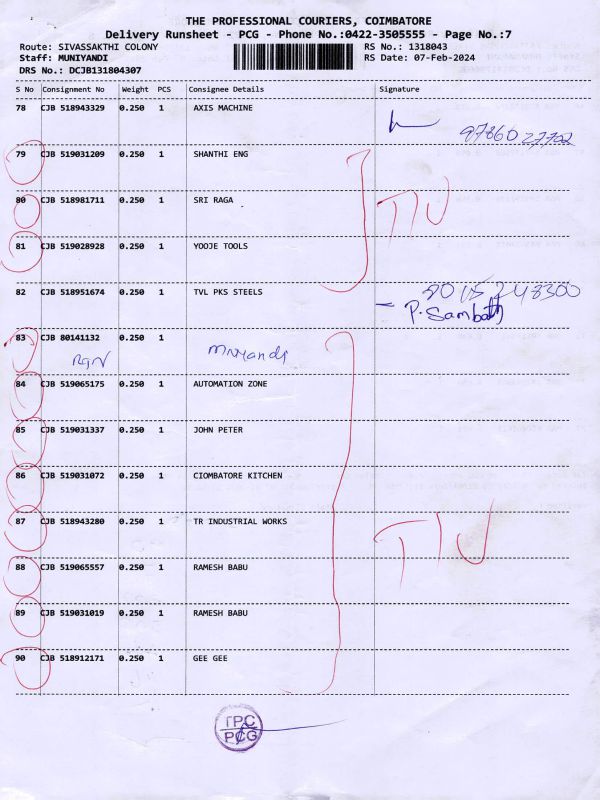 THE PROFESSIONAL COURIERS, COIMBATORE
Delivery Runsheet - PCG - Phone No.:0422-3505555 - Page No.:7
Route: SIVASSAKTHI COLONY RS No.: 1318043
Staff: MUNIYANDI RS Date: 07-Feb-2024
DRS No.: DCJB131804307
S No Consignment No Weight PCS Consignee Details Signature
78 CJB 518943329 0.250 1 AXIS MACHINE
97860 27702
79 CJB 519031209 0.250 1 SHANTHI ENG
80 CJB 518981711 0.250 1 SRI RAGA
81 CJB 519028928 0.250 1 YOOJE TOOLS
82 CJB 518951674 0.250 1 TVL PKS STEELS
P. Sambath
83 CJB 80141132 0.250 1
84 CJB 519065175 0.250 1 AUTOMATION ZONE
85 CJB 519031337 0.250 1 JOHN PETER
86 CJB 519031072 0.250 1 CIOMBATORE KITCHEN
87 CJB 518943280 0.250 1 TR INDUSTRIAL WORKS
88 CJB 519065557 0.250 1 RAMESH BABU
89 CJB 519031019 0.250 1 RAMESH BABU
90 CJB 518912171 0.250 1 GEE GEE
TPC
PCG